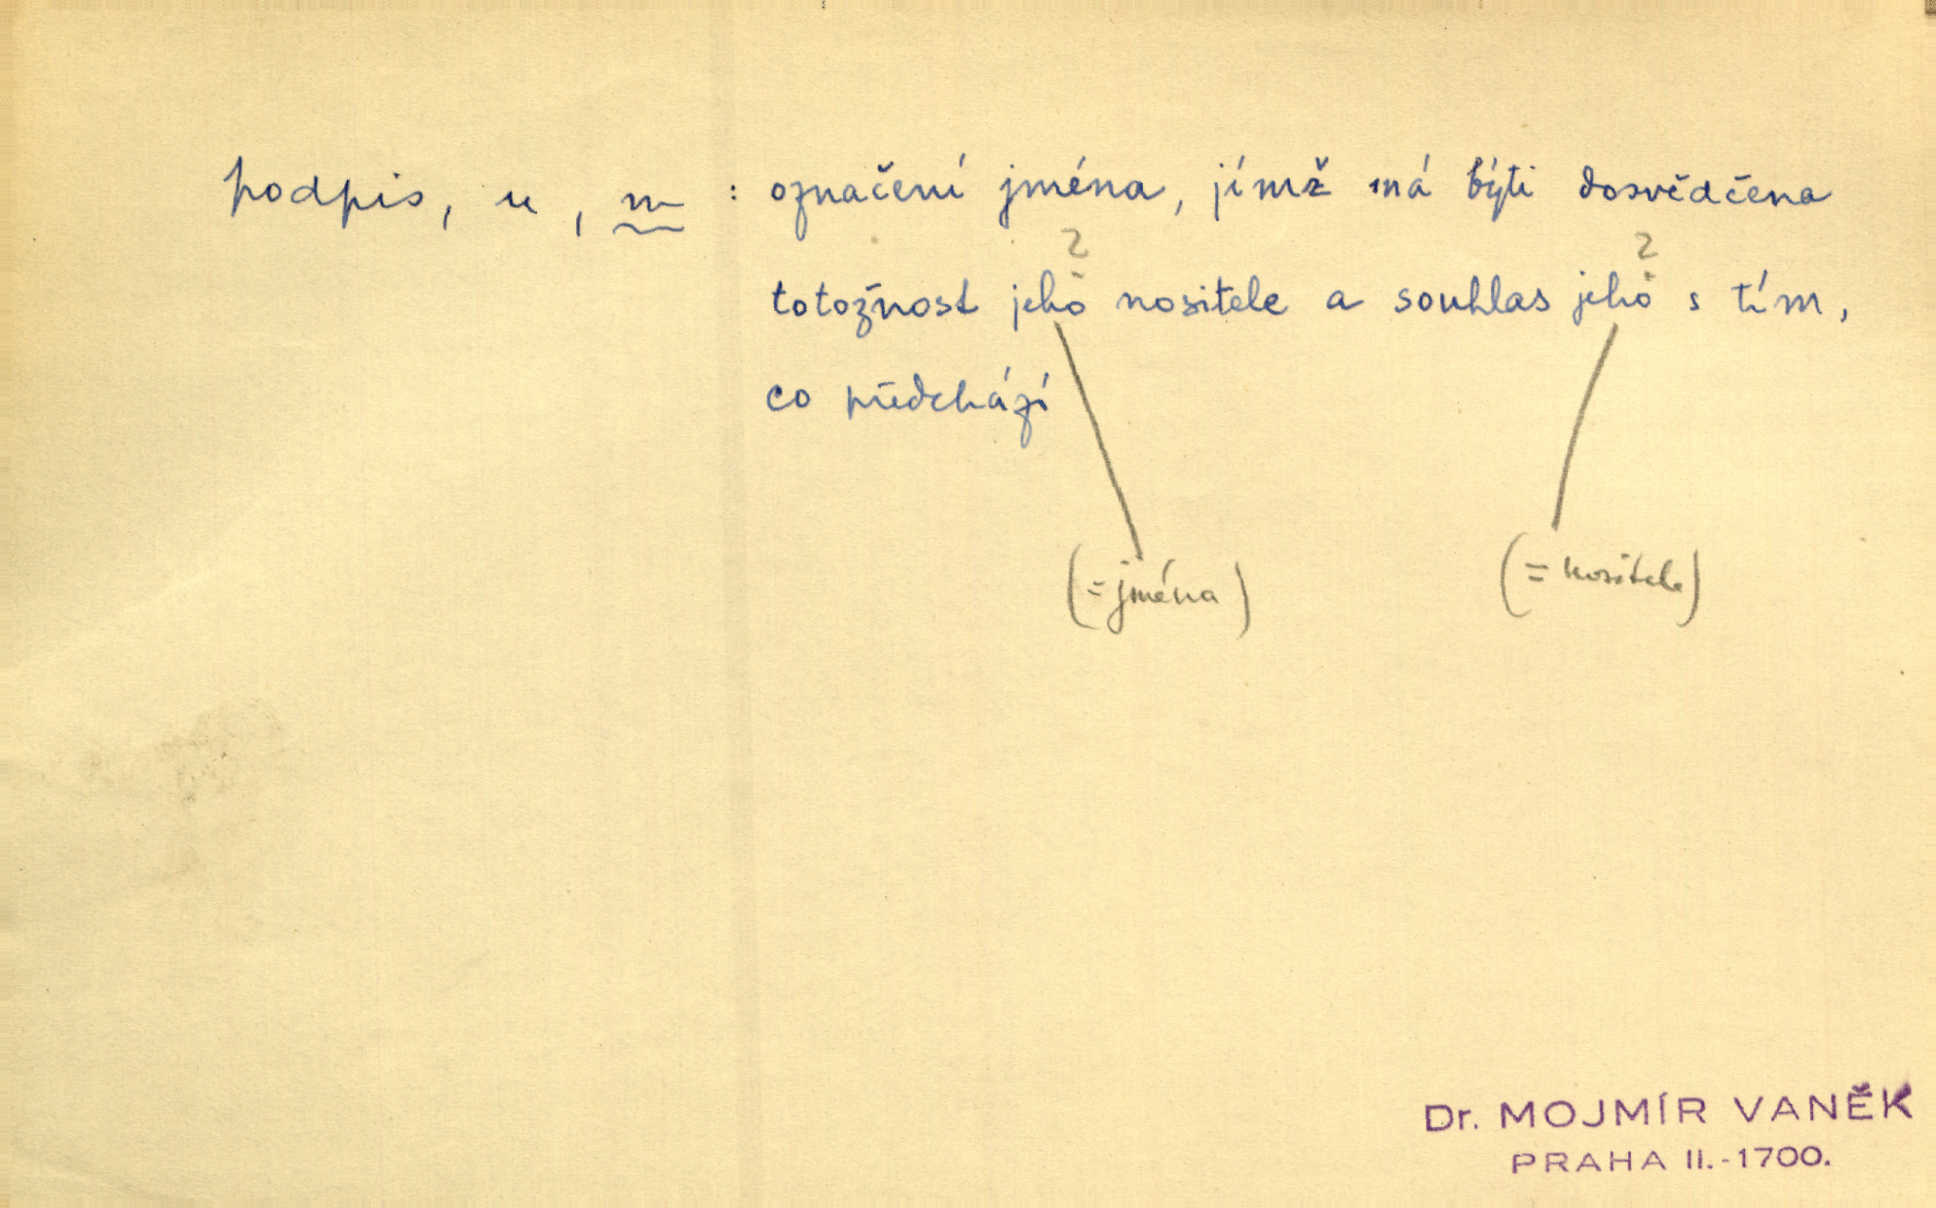 podpis, u, m : označení jména, jímž má býti dosvědčena
? ?
totožnost jeho nositele a souhlas jeho s tím,
co předchází
(= jména) (= nositele)
Dr. MOJMÍR VANĚK
PRAHA II.-1700.